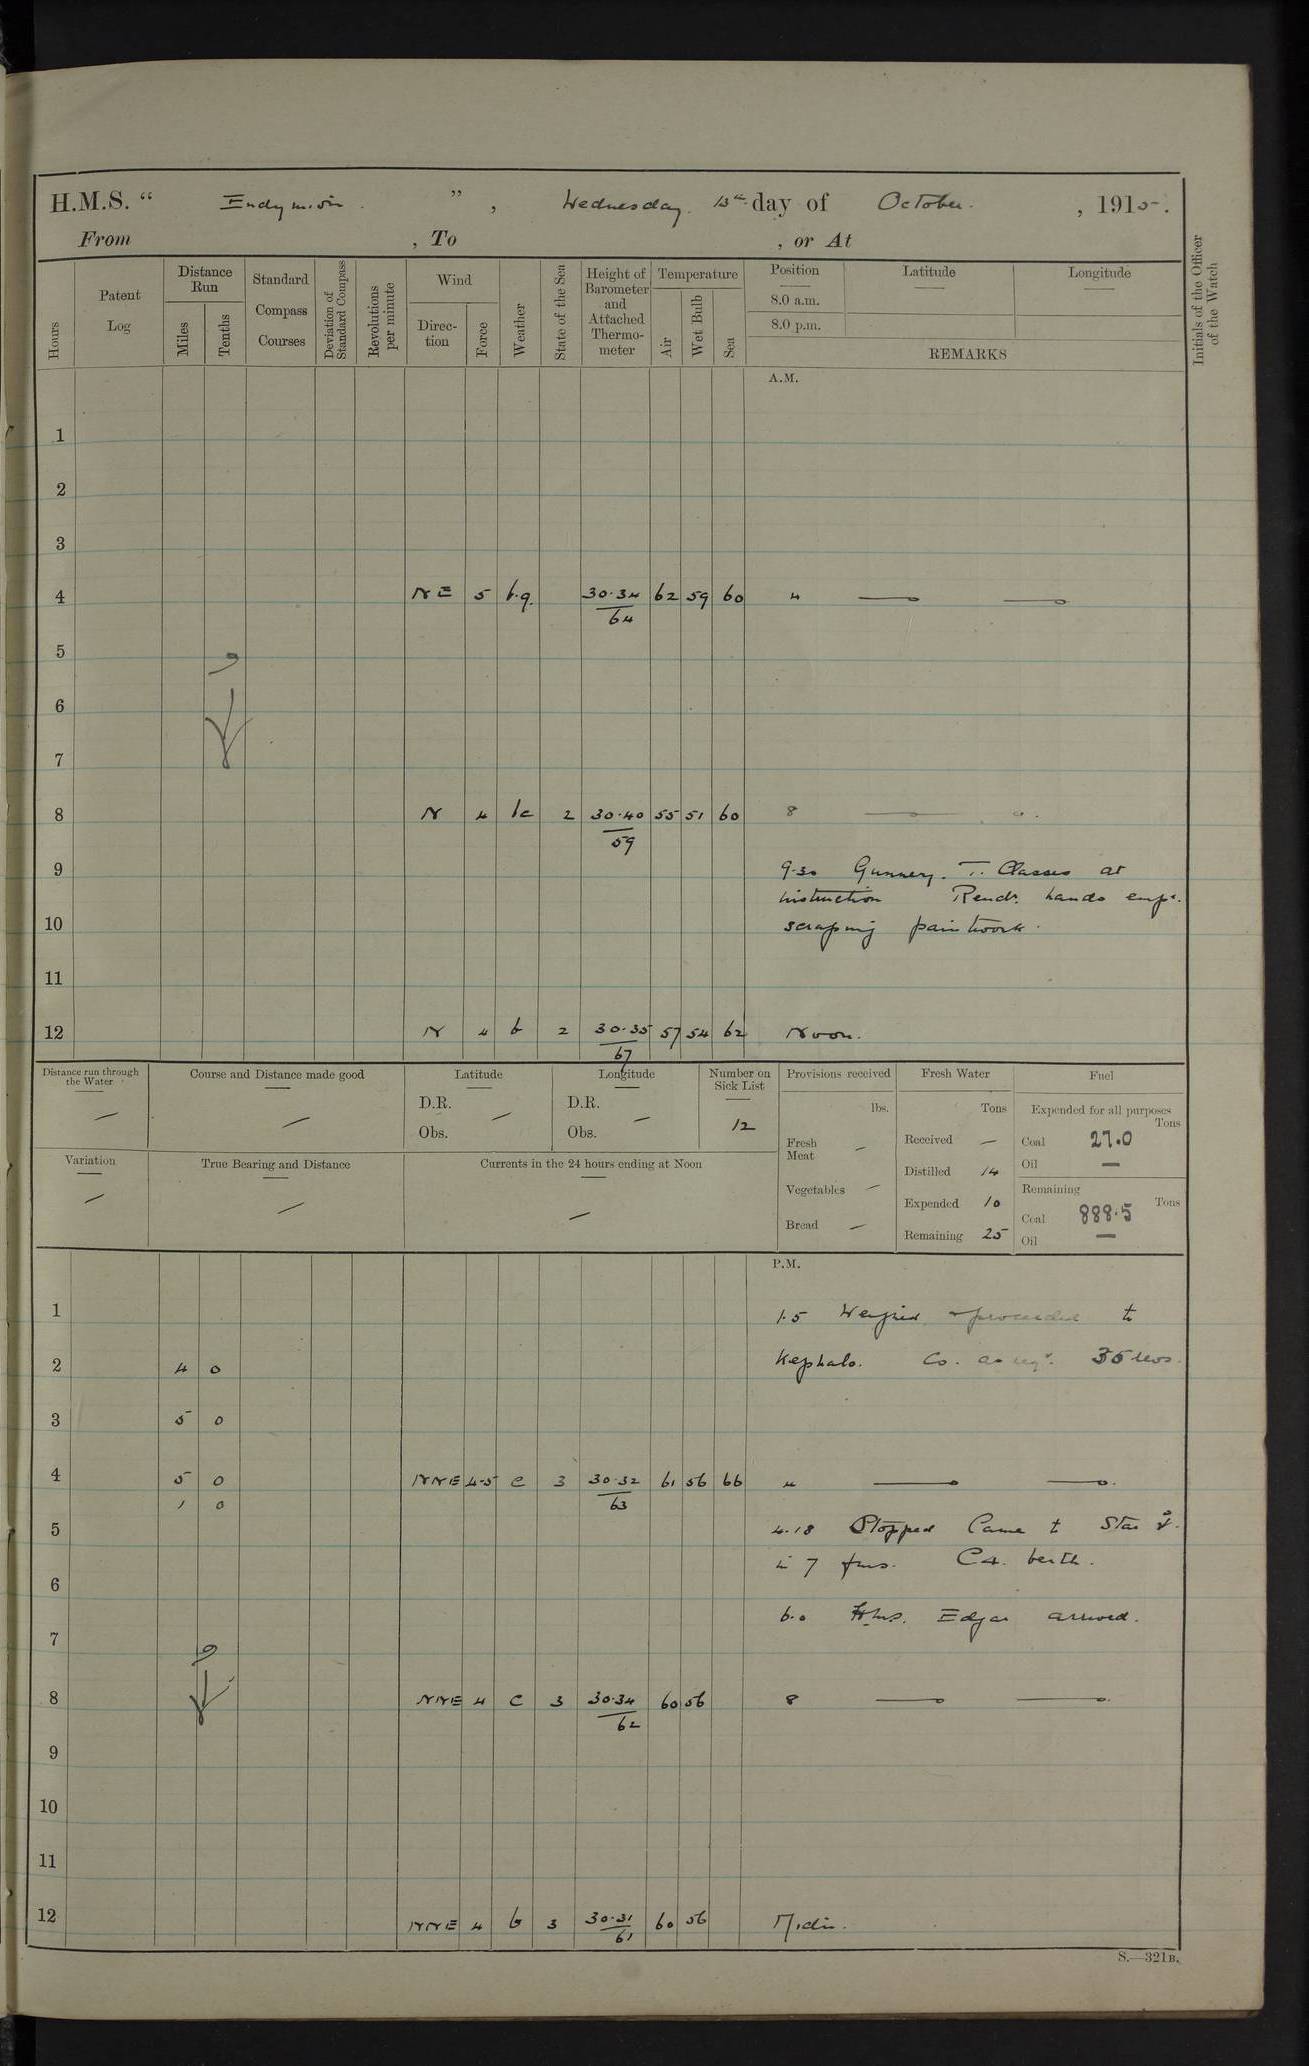 H.M.S. “ Endymion. ” , Wednesday. 13th day of October. , 1915.
From , To , or At
Hours
Patent Log
Distance Run
Miles
Tenths
Standard Compass Courses
Deviation of Standard Compass
Revolutions per minute
Wind
Direction
Force
Weather
State of the Sea
Height of Barometer and Attached Thermometer
Temperature
Air
Wet Bulb
Sea
Position
8.0 a.m.
8.0 p.m.
Latitude
Longitude
REMARKS
Initials of the Officer of the Watch
A.M.
1
2
3
4 NE 5 b.q. 30.34/64 62 59 60 4
5
6
7
8 N 4 bc 2 30.40/59 55 51 60 8
9 9.30 Gunnery. T. Classes at
instruction Remdr. hands empd.
10 scraping paintwork.
11
12 N 4 b 2 30.35/67 57 54 62 Noon.
Distance run through the Water —
Course and Distance made good —
Latitude
D.R. —
Obs.
Longitude
D.R. —
Obs.
Number on Sick List
12
Provisions received
lbs.
Fresh Meat —
Vegetables —
Bread —
Fresh Water
Tons
Received —
Distilled 14
Expended 10
Remaining 25
Fuel
Expended for all purposes
Tons
Coal 27.0
Oil —
Remaining
Tons
Coal 888.5
Oil —
Variation —
True Bearing and Distance —
Currents in the 24 hours ending at Noon —
P.M.
1 1.5 Weighed & proceeded to
2 4 0 Kephalo. Co. as reqd. 35 revs.
3 5 0
4 5 0 NNE 4-5 c 3 30.32/63 61 56 66 4
1 0
5 4.18 Stopped Came to Star
in 7 fms. C4. berth.
6
6.0 H.M.S. Edgar arrived.
7
8 NNE 4 c 3 30.34/62 60 56 8
9
10
11
12 NNE 4 b 3 30.31/61 60 56 Midn.
S.—321B.